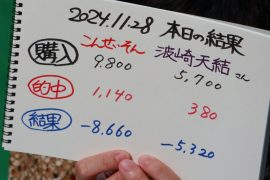 2024.11.28 本日の結果
こんせ.そん 波崎天結さん
購入 9.800 5,700
的中 1,140 380
結果 -8.660 -5.320